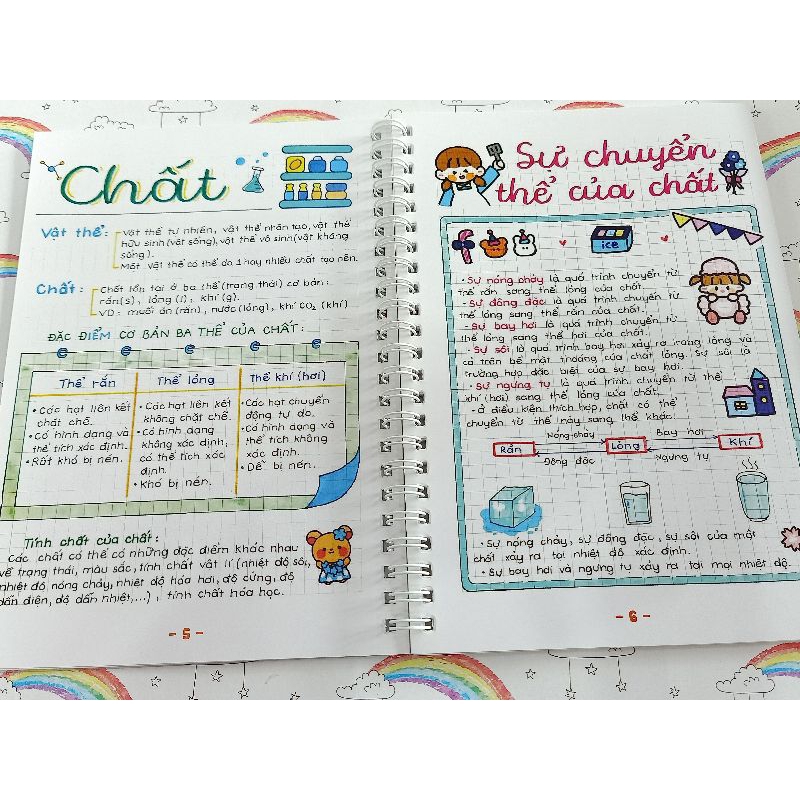 Chất
Vật thể:
Vật thể tự nhiên, vật thể nhân tạo, vật thể
hữu sinh (vật sống), vật thể vô sinh (vật không
sống).
Một vật thể có thể do 1 hay nhiều chất tạo nên.
Chất:
Chất tồn tại ở ba thể (trạng thái) cơ bản:
rắn(s), lỏng (l), khí (g).
VD: muối ăn (rắn), nước (lỏng), khí CO₂ (khí)
ĐẶC ĐIỂM CƠ BẢN BA THỂ CỦA CHẤT:
Thể rắn
• Các hạt liên kết
chặt chẽ.
• Có hình dạng và
thể tích xác định.
• Rất khó bị nén.
Thể lỏng
• Các hạt liên kết
không chặt chẽ.
• Có hình dạng
không xác định,
có thể tích xác
định.
• Khó bị nén.
Thể khí (hơi)
• Các hạt chuyển
động tự do.
• Có hình dạng và
thể tích không
xác định.
• Dễ bị nén.
Tính chất của chất:
Các chất có thể có những đặc điểm khác nhau
về trạng thái, màu sắc, tính chất vật lí (nhiệt độ sôi,
nhiệt độ nóng chảy, nhiệt độ hóa hơi, độ cứng, độ
dẫn điện, độ dẫn nhiệt,...), tính chất hóa học.
- 5 -
Sự chuyển
thể của chất
ice
• Sự nóng chảy là quá trình chuyển từ
thể rắn sang thể lỏng của chất.
• Sự đông đặc là quá trình chuyển từ
thể lỏng sang thể rắn của chất.
• Sự bay hơi là quá trình chuyển từ
thể lỏng sang thể hơi của chất.
• Sự sôi là quá trình bay hơi xảy ra trong lòng và
cả trên bề mặt thoáng của chất lỏng. Sự sôi là
trường hợp đặc biệt của sự bay hơi.
• Sự ngưng tụ là quá trình chuyển từ thể
khí (hơi) sang thể lỏng của chất.
• Ở điều kiện thích hợp, chất có thể
chuyển từ thể này sang thể khác:
Nóng chảy Bay hơi
Rắn Lỏng Khí
Đông đặc Ngưng tụ
• Sự nóng chảy, sự đông đặc, sự sôi của một
chất xảy ra tại nhiệt độ xác định.
• Sự bay hơi và ngưng tụ xảy ra tại mọi nhiệt độ.
- 6 -